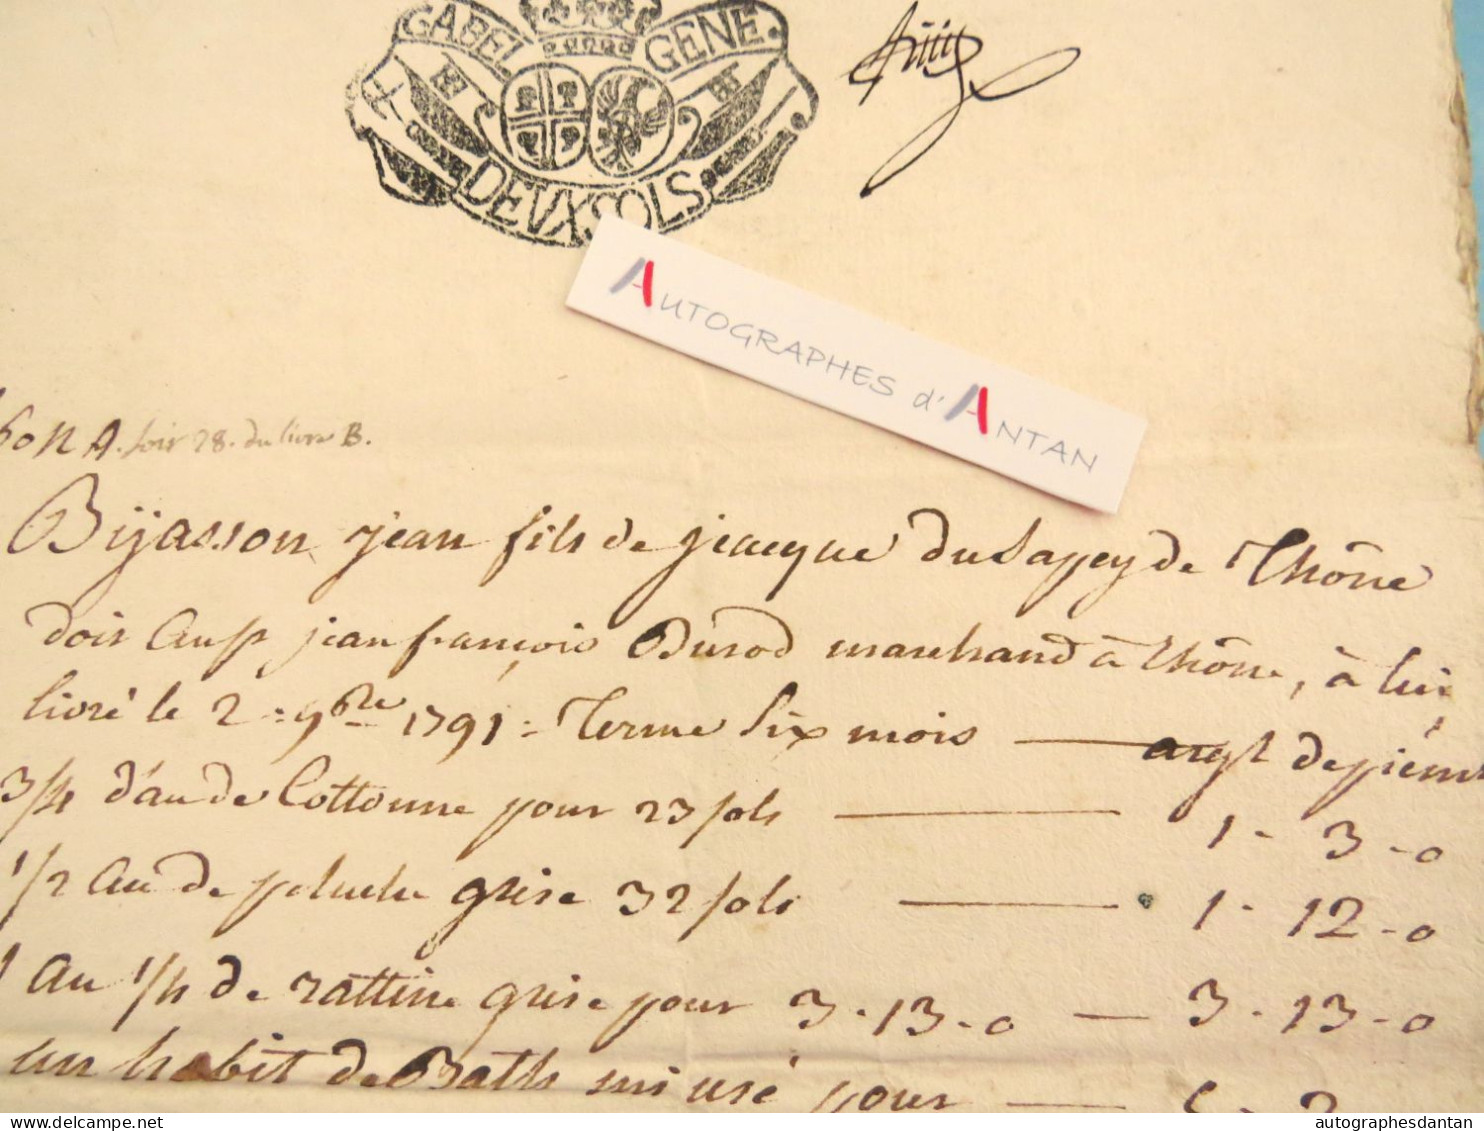 GABEL GENE.
DEVX SOLS
AUTOGRAPHES d'ANTAN
A. soir 28. du livre B.
Bijasson jean fils de jeacque du Sappey de Thône
doit au sr jean françois Durod marchand à Thône, à lui
livré le 2 = 9bre 1791 = Terme six mois — argt de piém
3/4 d'au de Cottonne pour 23 sols — 1 - 3 - 0
1/2 au de peluche grise 32 sols — 1 - 12 - 0
1 au 1/4 de rattine grise pour 3 - 13 - 0 — 3 - 13 - 0
un habit de Bath mi usé pour —
autographesdantan